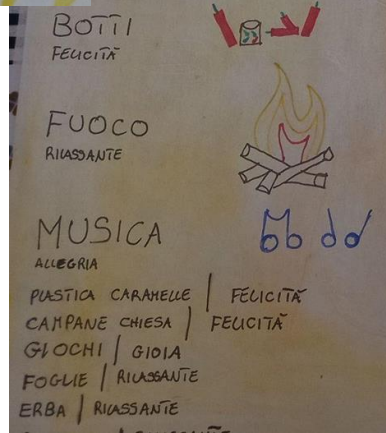 BOTTI
FELICITÀ
FUOCO
RILASSANTE
MUSICA
ALLEGRIA
PLASTICA CARAMELLE | FELICITÀ
CAMPANE CHIESA | FELICITÀ
GIOCHI | GIOIA
FOGLIE | RILASSANTE
ERBA | RILASSANTE